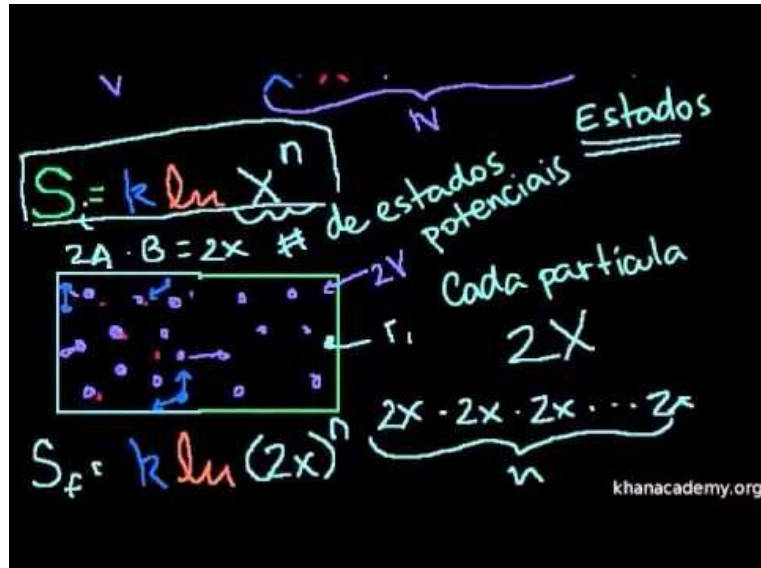 V
N
Estados
Sᵢ = k ln Xⁿ
# de estados
potenciais
2A · B = 2x
2V
Cada partícula
T₁
2X
2x · 2x · 2x · · · 2x
n
S_f = k ln (2x)ⁿ
khanacademy.org